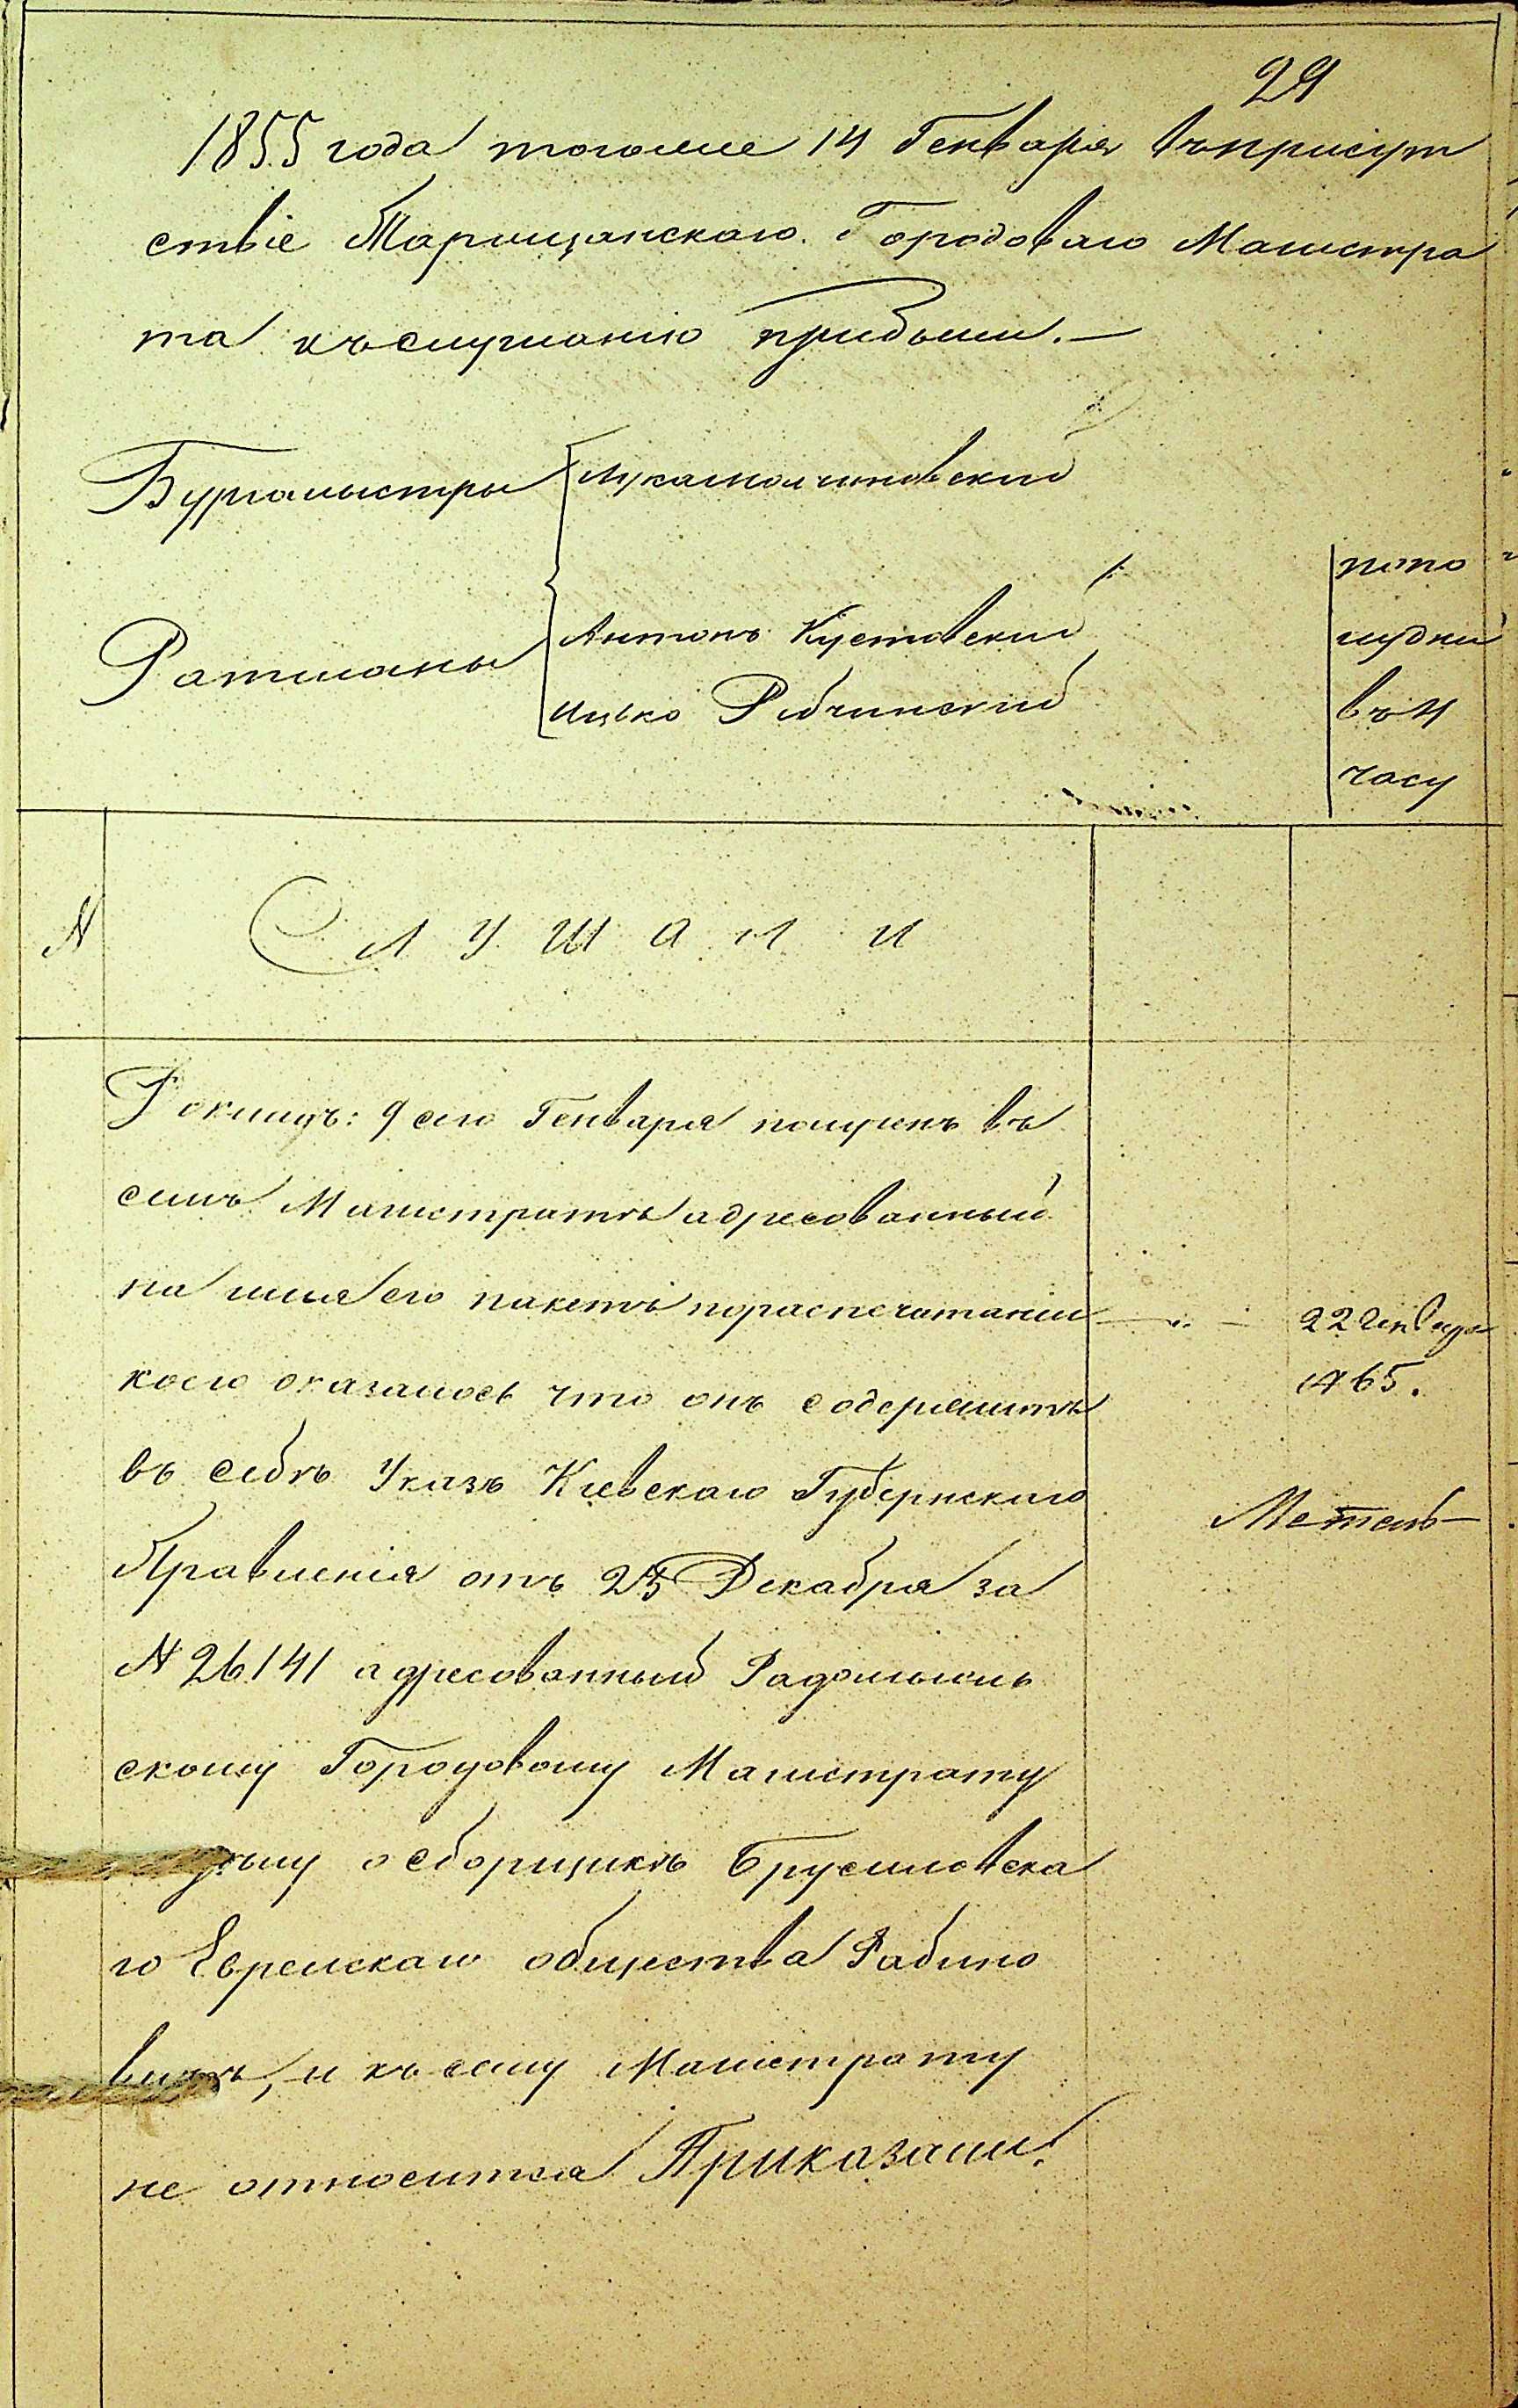 29
1855 года тогоже 14 Генваря въприсут
ствіе Таращанскаго Городоваго Магистра
та къслушанію прибыли.—
Бургомыстры
Ратманы
Антонъ Кустовский
Ицько Рабчинский
попо
лудни
въ 4
часу
N
Слушали
Докладъ: 9 сего Генваря полученъ въ
семъ Магистратѣ адресованный
на имя его пакетъ пораспечатаніи
коего оказалось что онъ содержитъ
въ себѣ Указъ Кіевскаго Губернскаго
Правленія отъ 23 Декабря за
N 26141 адресованный Радомысль
скому Городовому Магистрату
о сборщикѣ Брусиловска
го Еврейскаго общества Рабино
вичѣ, и къ сему Магистрату
не относится Приказали:
22 Генваря
165.